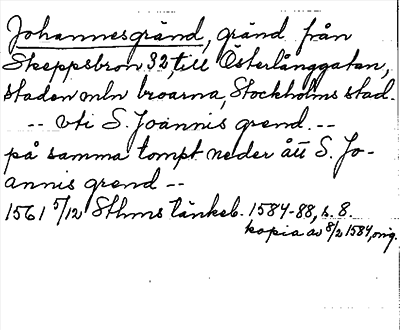 Johannesgränd, gränd från
Skeppsbron 32, till Österlånggatan,
staden mln broarna, Stockholms stad.
-- vti S. Joannis grend. --
på samma tompt neder ått S. Jo-
annis grend --
1561 5/12 Sthms tänkeb. 1584-88, s. 8.
kopia av 8/2 1584, orig.